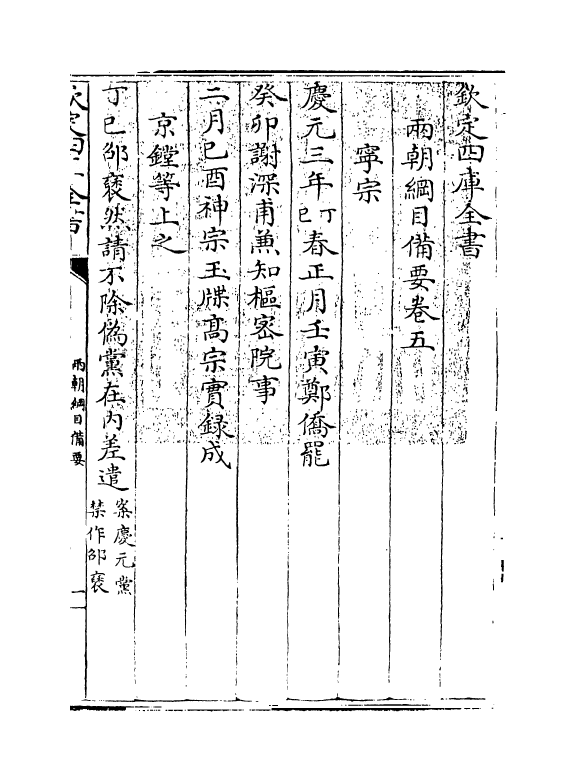 欽定四庫全書
兩朝綱目備要卷五
寧宗
慶元三年丁巳春正月壬寅鄭僑罷
癸卯謝深甫兼知樞密院事
二月己酉神宗玉牒髙宗實録成
京鏜等上之
丁巳邵襃然請不除偽黨在内差遣案慶元黨禁作邵襃
欽定四庫全書
兩朝綱目備要
一